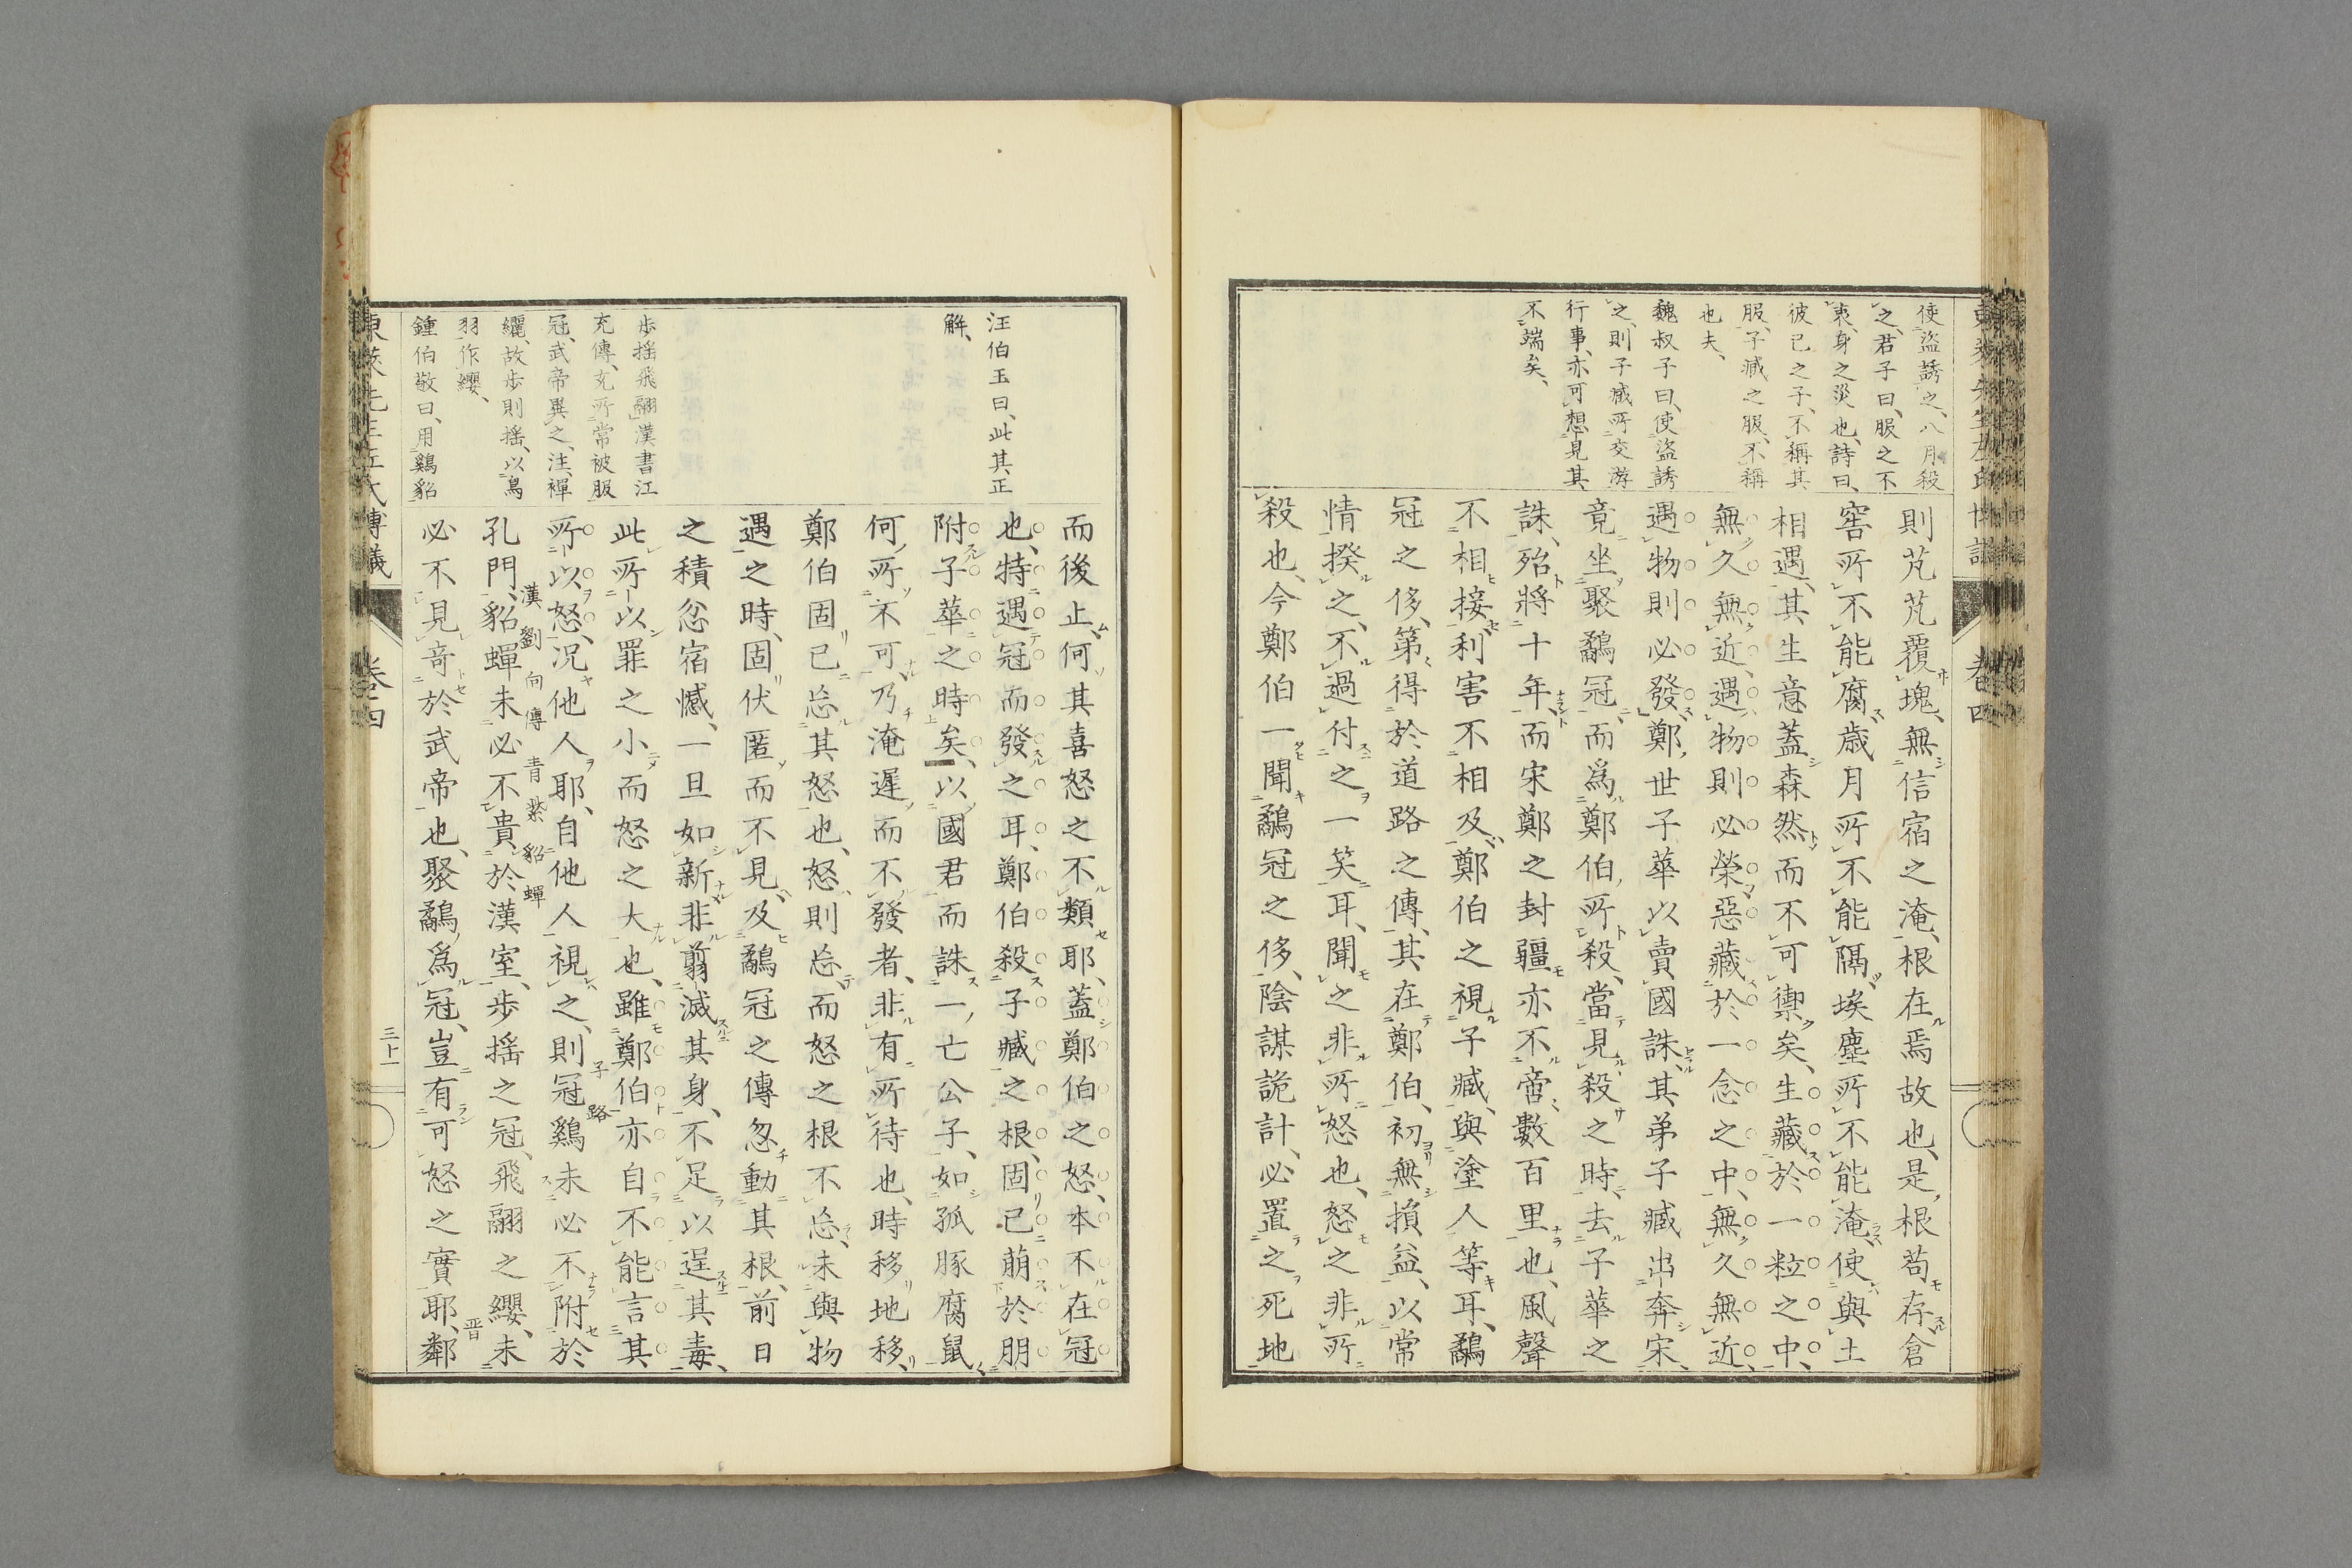 使盜誘之、八月殺
之、君子曰、服之不
衷、身之災也、詩曰、
彼己之子、不稱其
服、子臧之服、不稱
也夫、
魏叔子曰、使盜誘
之、則子臧所交游
行事、亦可想見其
不端矣、
則芃芃覆塊、無信宿之淹、根在焉故也、是根苟存、倉
窖所不能腐、歲月所不能隔、埃塵所不能淹、使與土
相遇、其生意蓋森然而不可禦矣、生藏於一粒之中、
無久無近、遇物則必榮、惡藏於一念之中、無久無近、
遇物則必發、鄭世子華以賣國誅、其弟子臧出奔宋、
竟坐聚鷸冠、而爲鄭伯所殺、當見殺之時、去子華之
誅、殆將十年、而宋鄭之封疆亦不啻數百里也、風聲
不相接、利害不相及、鄭伯之視子臧、與塗人等耳、鷸
冠之侈、第得於道路之傳、其在鄭伯、初無損益、以常
情揆之、不過付之一笑耳、聞之非所怒也、怒之非所
殺也、今鄭伯一聞鷸冠之侈、陰謀詭計、必置之死地
卷四
汪伯玉曰、此其正
解、
步搖飛翮、漢書江
充傳、充所常被服
冠、武帝異之、注、襌
纚、故步則搖、以鳥
羽作纓、
鍾伯敬曰、用鷄貂
而後止、何其喜怒之不類耶、蓋鄭伯之怒、本不在冠
也、特遇冠而發之耳、鄭伯殺子臧之根、固已萠於朋
附子華之時矣、以國君而誅一亡公子、如孤豚腐鼠
何所不可、乃淹遲而不發者、非有所待也、時移地移、
鄭伯固已忘其怒也、怒則忘、而怒之根不忘、未與物
遇之時、固伏匿而不見、及鷸冠之傳忽動其根、前日
之積忿宿憾、一旦如新、非翦滅其身、不足以逞其毒、
此所以罪之小而怒之大也、雖鄭伯亦自不能言其
所以怒、況他人耶、自他人視之、則冠鷄未必不附於
子路
孔門、貂蟬未必不貴於漢室、步搖之冠、飛翮之纓、未
漢劉向傳青紫貂蟬
必不見奇於武帝也、聚鷸爲冠、豈有可怒之實耶、鄰
晋
東萊先生左氏博議
卷四
三十一